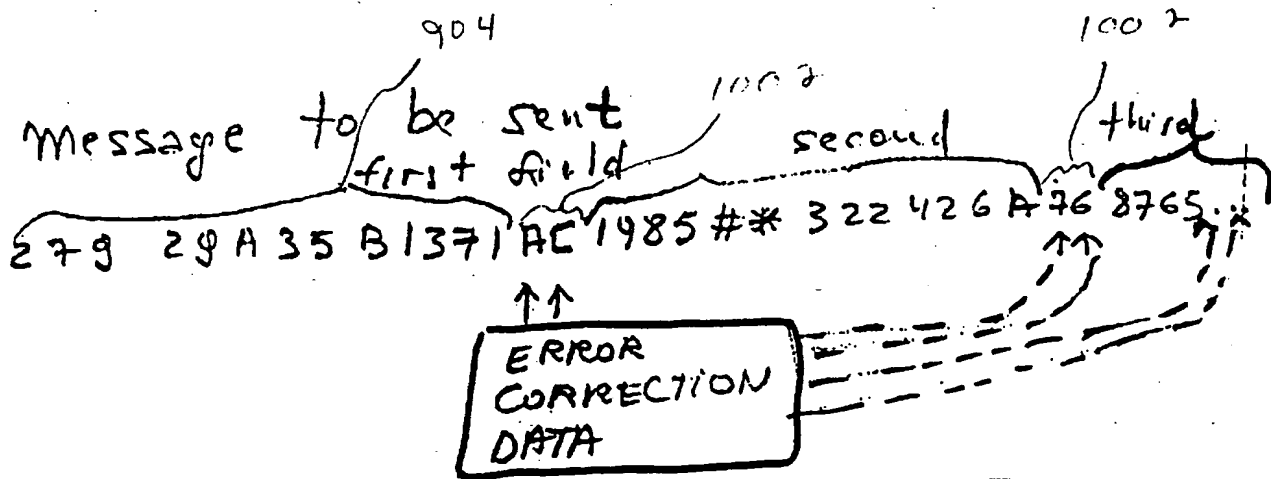 904
1002
1002
Message to be sent
first field
second
third
279 29A 35 B1371 AC 1985 #* 322 426 A 76 8765..
ERROR
CORRECTION
DATA